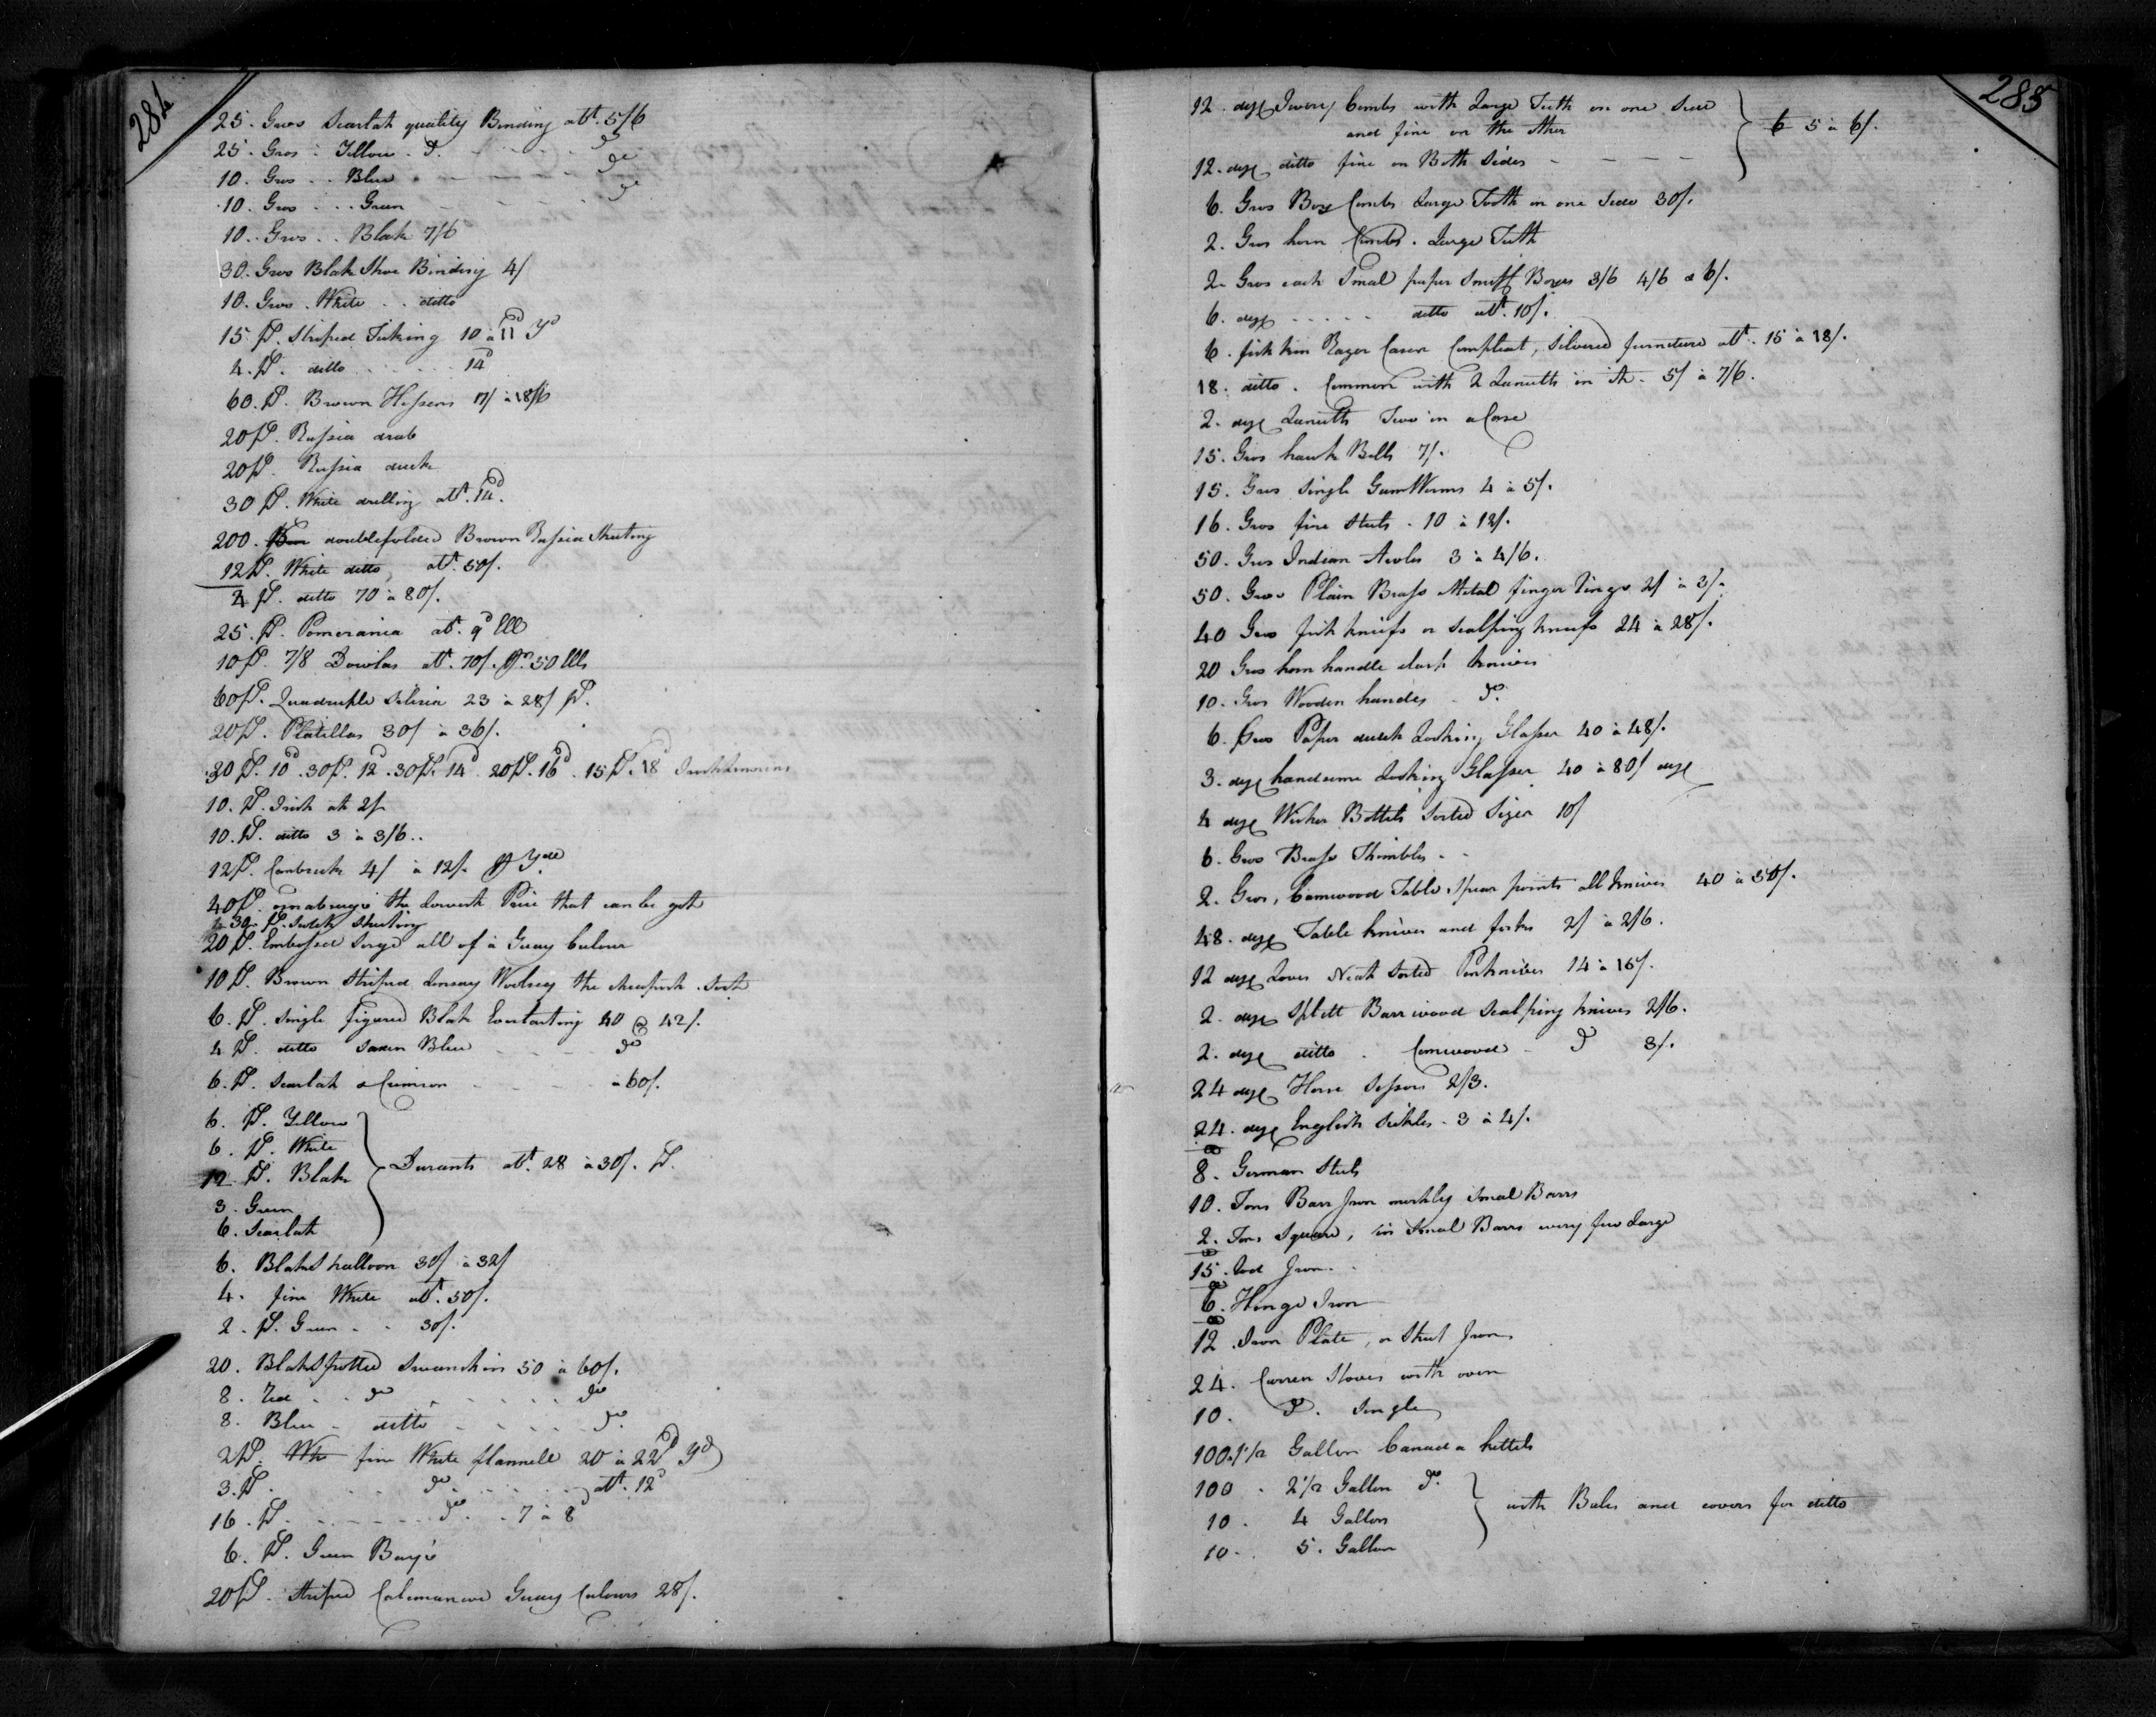 284
25. Gros Scarlat quality Binding att. 5/6
25. Gros - Yellow - do. - - - - do
10. Gros - - Blue - - - - - do
10. Gros - - - Green - - - - do
10. Gros - - Blak 7/6
30. Gros Blak Shoe Binding 4/
10. Gros. White - - ditto
15. Ps. Striped Ticking 10 à 11d Yd
4. Ps. ditto - - - - 14d
60. Ps. Brown Hessens 17/ à 18/6
20 Ps. Russia drab
20 Ps. Russia duck
30 Ps. White drilling att. 14d.
200. doublefolded Brown Russia Sheeting
12 Ps. White ditto, att. 50/.
4 Ps. ditto 70 à 80/.
25. Ps. Pomerania att. 9d Ell
10 Ps. 7/8 Dowlas att. 70/. pr. 50 Ells
60 Ps. Quadruple Silisia 23 à 28/ Ps.
20 Ps. Platillas 30/ à 36/.
30 Ps. 10d. 30 Ps. 12d. 30 Ps. 14d. 20 Ps. 16d. 15 Ps. 18d
10. Ps. Irish at 2/
10. Ps. ditto 3 à 3/6..
12 Ps. Cambrick 4/ à 12/. pr Yard
40 Ps. osnabrugs the Lowerst Price that can be got
30. Ps. Sheeting
20 Ps. Embossed Serge all of a Guay Culour
10 Ps. Brown Striped Linsay Woolsey the cheapest Sort
6. Ps. Single figured Blak Everlasting 40 @ 42/.
4 Ps. ditto Saxen Blue - - - - do
6. Ps. Scarlat & Crimson - - - - à 60/.
6. Ps. Yellow
6. Ps. White
12. Ps. Blak } Durants att. 28 à 30/. Ps.
3. Green
6. Scarlat
6. Blak Shalloon 30/ à 32/
4. fine White att. 50/.
2. Ps. Green - - 30/.
20. Blak Spotted Swanskin 50 à 60/.
8. Red - - do - - - - - do
8. Blue - ditto - - - - do.
2 Ps. Whi fine White flannell 20 à 22d Yd
3. Ps. - - do - - - - att. 12d
16. Ps. - - - - - do. - 7 à 8d
6. Ps. Green Bayze
20 Ps. Striped Calemancoe Guay Culours 28/.
285
12. doz Ivory Combs with Large Tuth on one Side
and fine on the other } 5 à 6/.
12. doz ditto fine on Both Sides - - - -
6. Gros Box Combs Large Tooth on one Side 30/.
2. Gros horn Combs. Large Tuth
2. Gros each Smal paper Snuff Boxes 3/6 4/6 & 6/.
6. doz - - - - - ditto att. 10/.
6. fish skin Razer Cases Compleat, Silvered furniture att. 15 à 18/.
18. ditto. Common with 2 Lanutts in it. 5/ à 7/6.
2. doz Lanutts Two in a Case
15. Gros hawk Bells 7/.
15. Gros Single Gum Worms 4 à 5/.
16. Gros fire Steels - 10 à 12/.
50. Gros Indian Awles 3 à 4/6.
50. Gros Plain Brass Metal finger Rings 2/ à 3/.
40 Gros fish knifs or Scalping knifs 24 à 28/.
20 Gros horn handle clasp knives
10. Gros Wooden handes - do.
6. Gros Paper Looking Glasses 40 à 48/.
3. doz handsome Looking Glasses 40 à 80/ doz
4 doz Wicker Bottels Sorted Sizes 10/
6. Gros Brass Thimbles - -
2. Gros, Camwood Table Spear points all knives 40 à 50/.
48. doz Table knives and forks 2/ à 2/6.
12 doz Neat Sorted Penknives 14 à 16/.
2. doz Splitt Barrwood Scalping knives 2/6.
2. doz ditto . Camwood - do 3/.
24 doz Horse Sissors 2/3.
24. doz English Sickles - 3 à 4/.
8. German Steels
10. Tons Barr Iron mostly Smal Barrs
2. Tons Square, in Smal Barrs very few Large
15. Rod Iron - -
6. Hinge Iron
12 Iron Plate, or Sheet Iron
24. Carren Stoves with oven
10. do. Single
100. 1 1/2 Gallon Canada kettels
100 - 2 1/2 Gallon do.
10 - 4 Gallon } with Bales and covers for ditto
10 - 5. Gallon